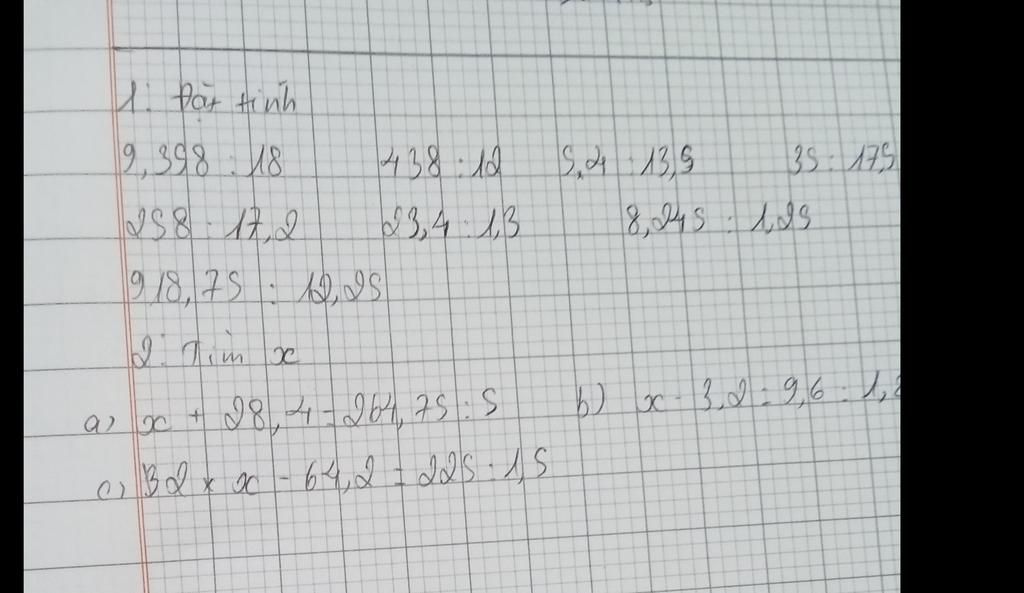 1: Đặt tính
9,398 : 18 438 : 12 5,4 : 13,5 35 : 17,5
258 : 17,2 23,4 : 1,3 8,245 : 1,25
918,75 : 12,25
2: Tìm x
a) x + 28,4 = 264,75 : 5 b) x - 3,2 = 9,6 : 1,
c) 32 x x - 64,2 = 225 : 1,5